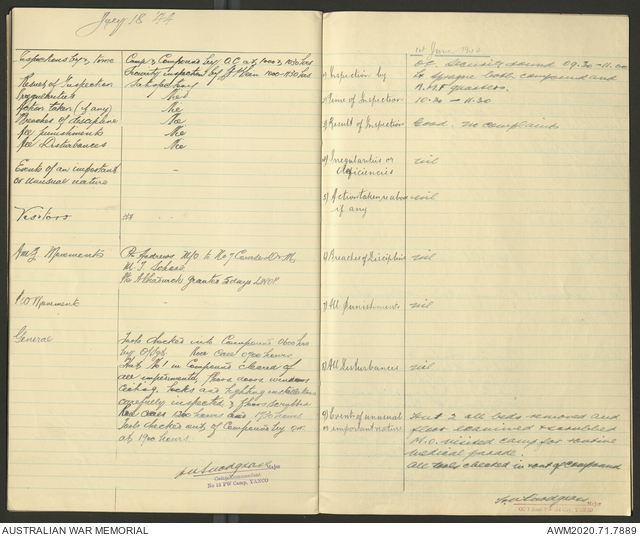 July 18 44
Inspections by, time
Camp & Compound by O.C at 1000 & 1030 hrs
Security inspection by Lt 1000-1130 hrs
Result of Inspection
Satisfactory
Irregularities
Nil
Action taken (if any)
Nil
Breaches of discipline
Nil
All punishments
Nil
All Disturbances
Nil
Events of an important
or unusual nature
-
Visitors
Nil
A.M.F. Movements
Pte Andrews to No 7
granted 5 days
P.W Movements
-
General
Tools checked into Compound 0600 hrs
by Roll Call 0700 hours
Hut No 1 in Compound cleared of
all impedimenta, floors doors windows
ceiling, locks and lighting installations
carefully inspected & floors scrubbed
Roll Calls 1300 hours and 1750 hours
Tools checked out of Compound by
at 1900 hours.
Major
Camp Commandant
No 15 PW Camp, YANCO
1st June
1) Inspection by
O.C. Security round 09.30 - 11.00
Lt Sprague both compound and
A.M.F quarters.
2) Time of Inspection
10.30 - 11.30
3) Result of Inspection
Good. no complaints
4) Irregularities or
deficiencies
nil
5) Action taken
if any
nil
6) Breaches of Discipline
nil
7) All Punishments
nil
8) All Disturbances
nil
9) Events of unusual
or important nature
Hut 2 all beds removed and
floor examined & scrubbed
M.O. visited camp for routine
medical parade.
All tools checked in & out of compound
Major
AUSTRALIAN WAR MEMORIAL
AWM2020.71.7889